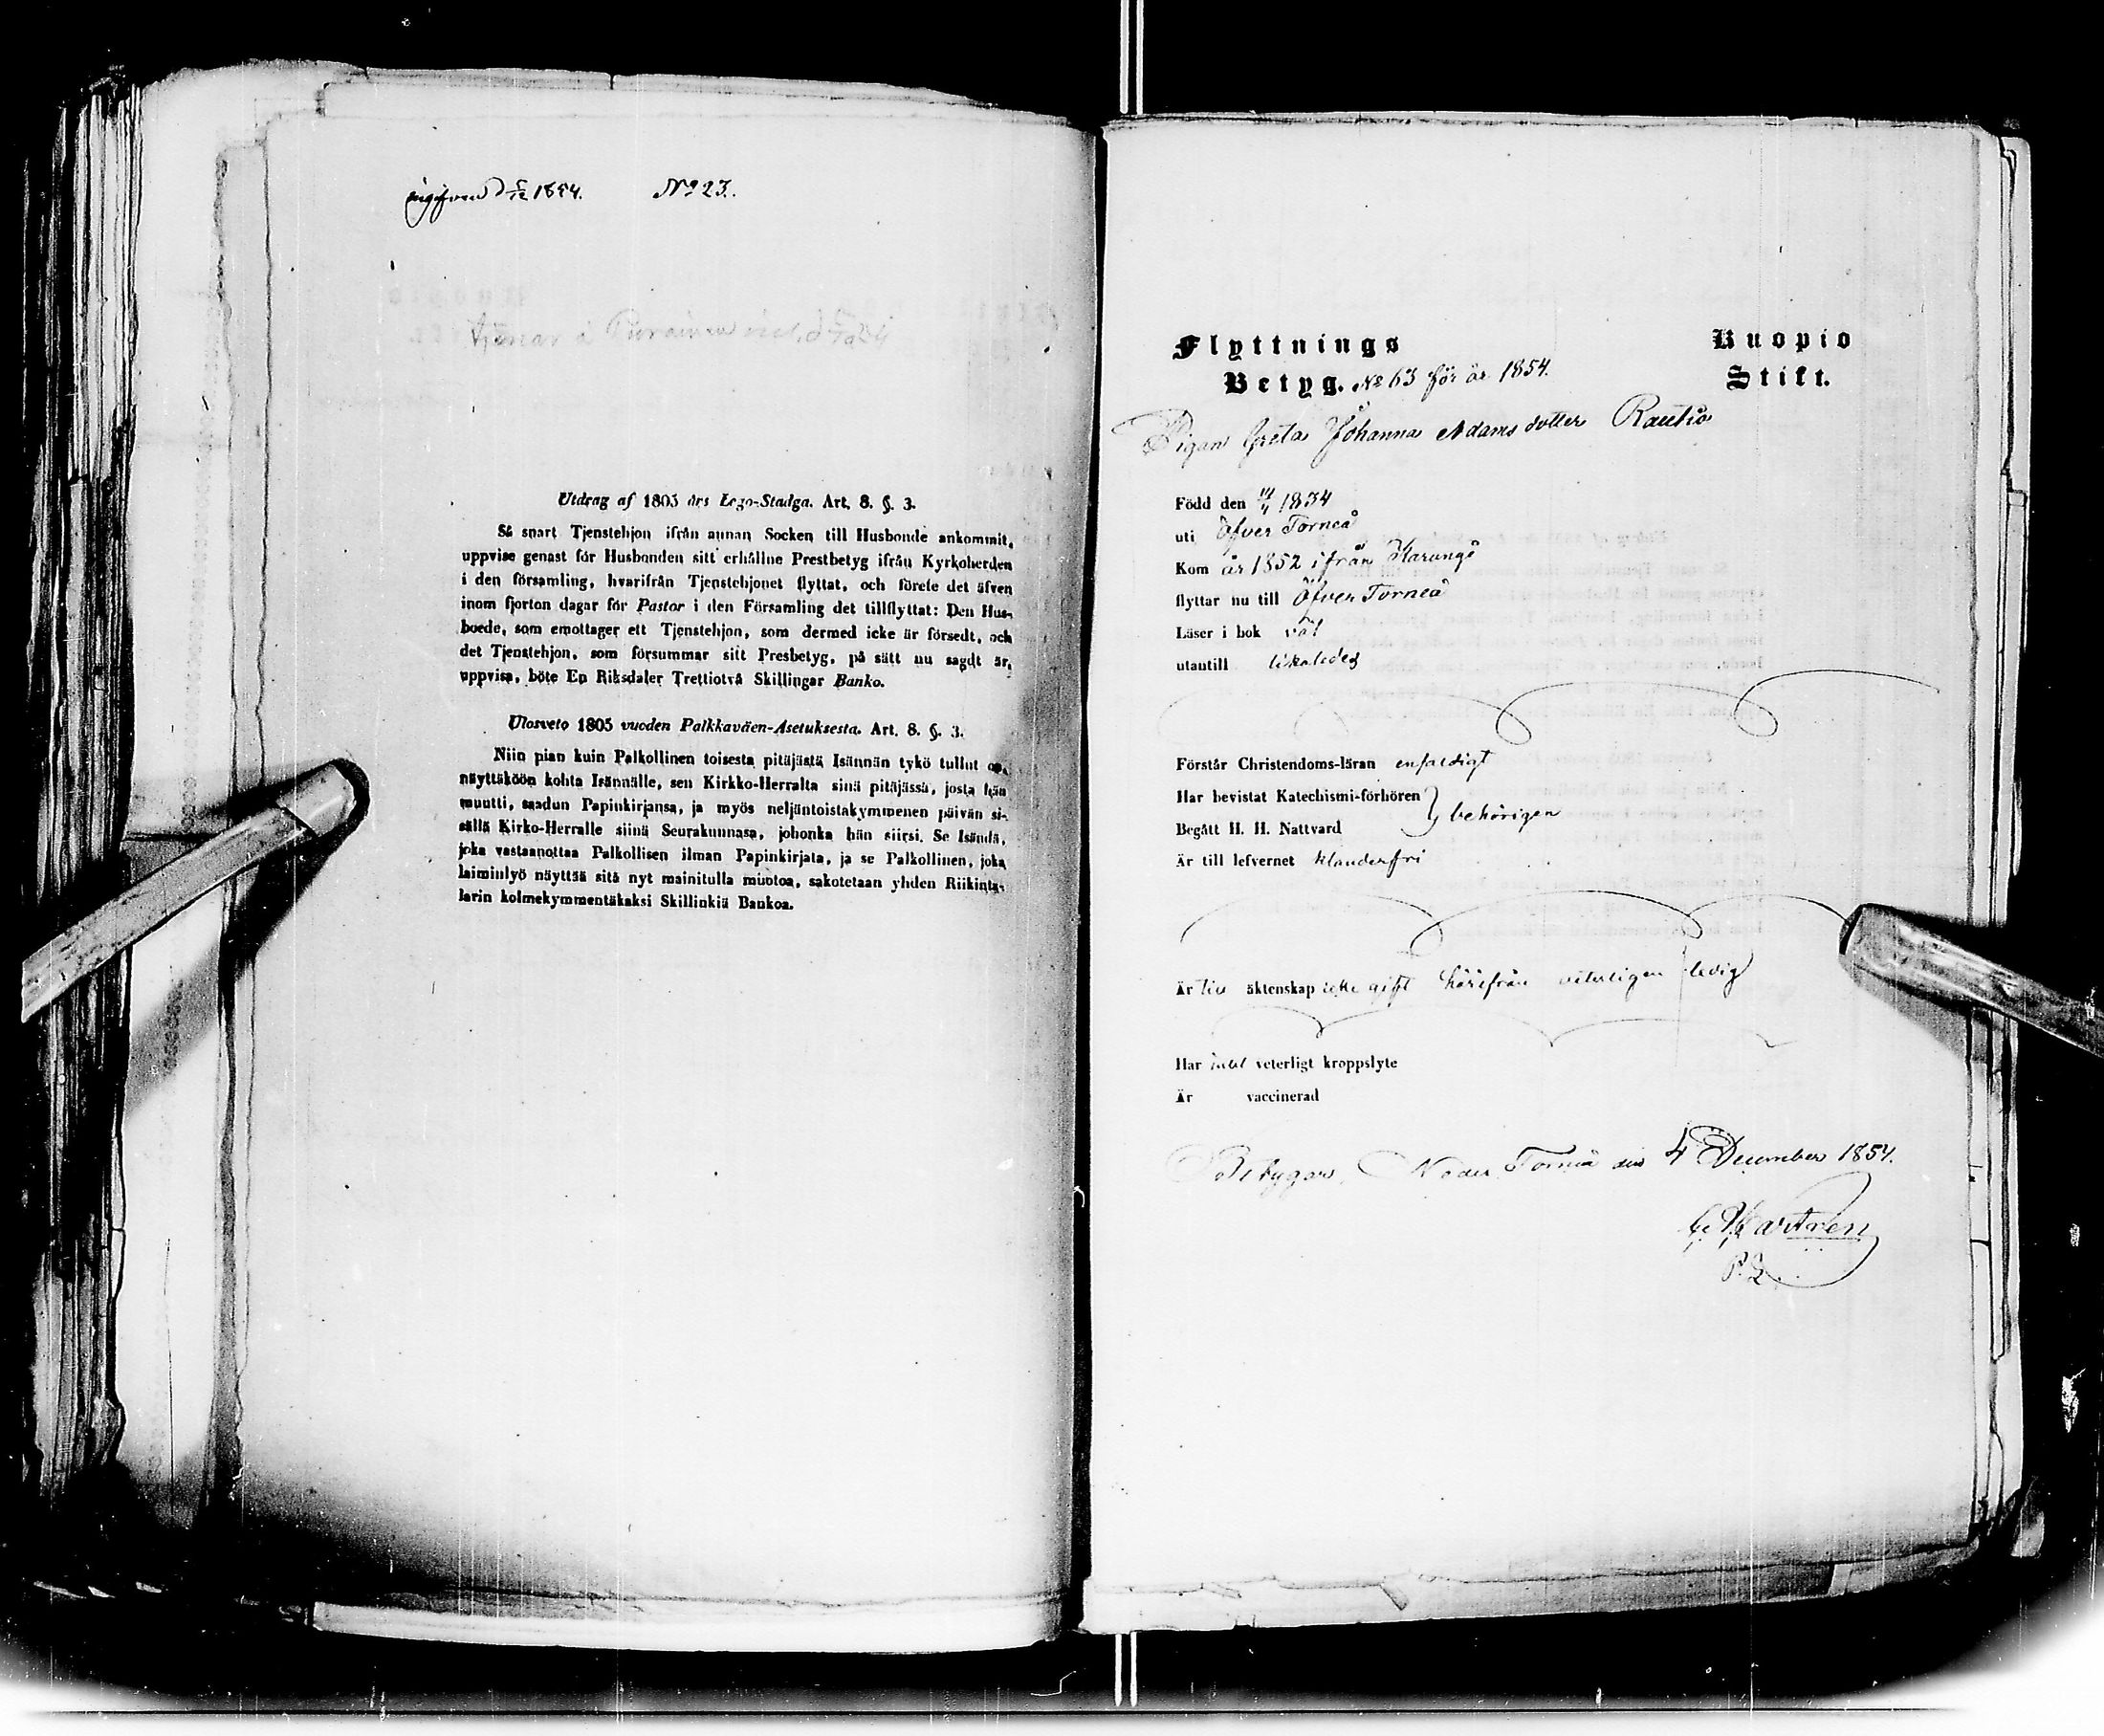 ingifven d 5/12 1854. No 23.
Tjenar å Purainen
Utdrag af 1805 års Lego-Stadga. Art. 8. §. 3.
Så snart Tjenstehjon ifrån annan Socken till Husbonde ankommit,
uppvise genast för Husbonden sitt erhållne Prestbetyg ifrån Kyrkoherden
i den församling, hvarifrån Tjenstehjonet flyttat, och förete det äfven
inom fjorton dagar för Pastor i den Församling det tillflyttat: Den Hus-
boede, som emottager ett Tjenstehjon, som dermed icke är försedt, och
det Tjenstehjon, som försummar sitt Presbetyg, på sätt nu sagdt är,
uppvisa, böte En Riksdaler Trettiotvå Skillingar Banko.
Ulosveto 1805 vuoden Palkkaväen-Asetuksesta. Art. 8. §. 3.
Niin pian kuin Palkollinen toisesta pitäjästä Isännän tykö tullut on,
näyttäköön kohta Isännälle, sen Kirkko-Herralta sinä pitäjässä, josta hän
muutti, saadun Papinkirjansa, ja myös neljäntoistakymmenen päivän si-
sällä Kirko-Herralle siinä Seurakunnasa, johonka hän siirsi. Se Isändä,
joka vastaanottaa Palkollisen ilman Papinkirjata, ja se Palkollinen, joka
laiminlyö näyttää sitä nyt mainitulla muotoa, sakotetaan yhden Riikinta-
larin kolmekymmentäkaksi Skillinkiä Bankoa.
Flyttnings Kuopio
Betyg. No 63 för år 1854. Stift.
Pigan Greta Johanna Adams dotter Rautio
Född den 1834
uti Öfver Torneå
Kom år 1852 ifrån Karungi
flyttar nu till Öfver Torneå
Läser i bok väl
utantill likaledes
Förstår Christendoms-läran enfaldigt
Har bevistat Katechismi-förhören
Begått H. H. Nattvard } behörigen
Är till lefvernet klanderfri
Är till äktenskap icke gift härifrån veterligen ledig
Har intet veterligt kroppslyte
Är vaccinerad
Betygar, Neder Torneå den 4 December 1854.
P.